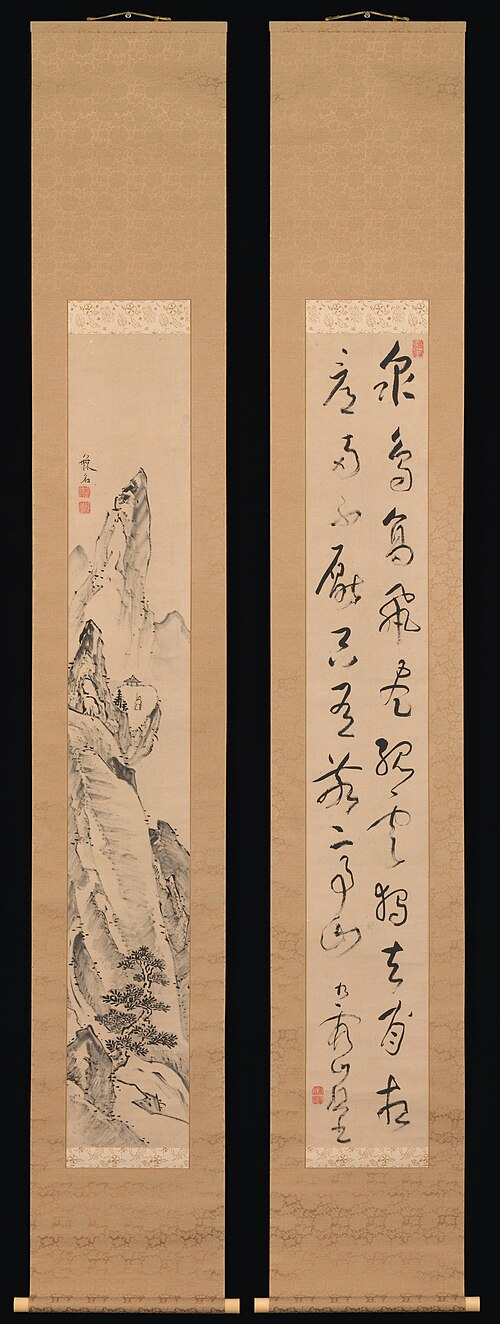 衆鳥高飛盡孤雲獨去閒相
看兩不厭只有敬亭山 九霞山樵
無名